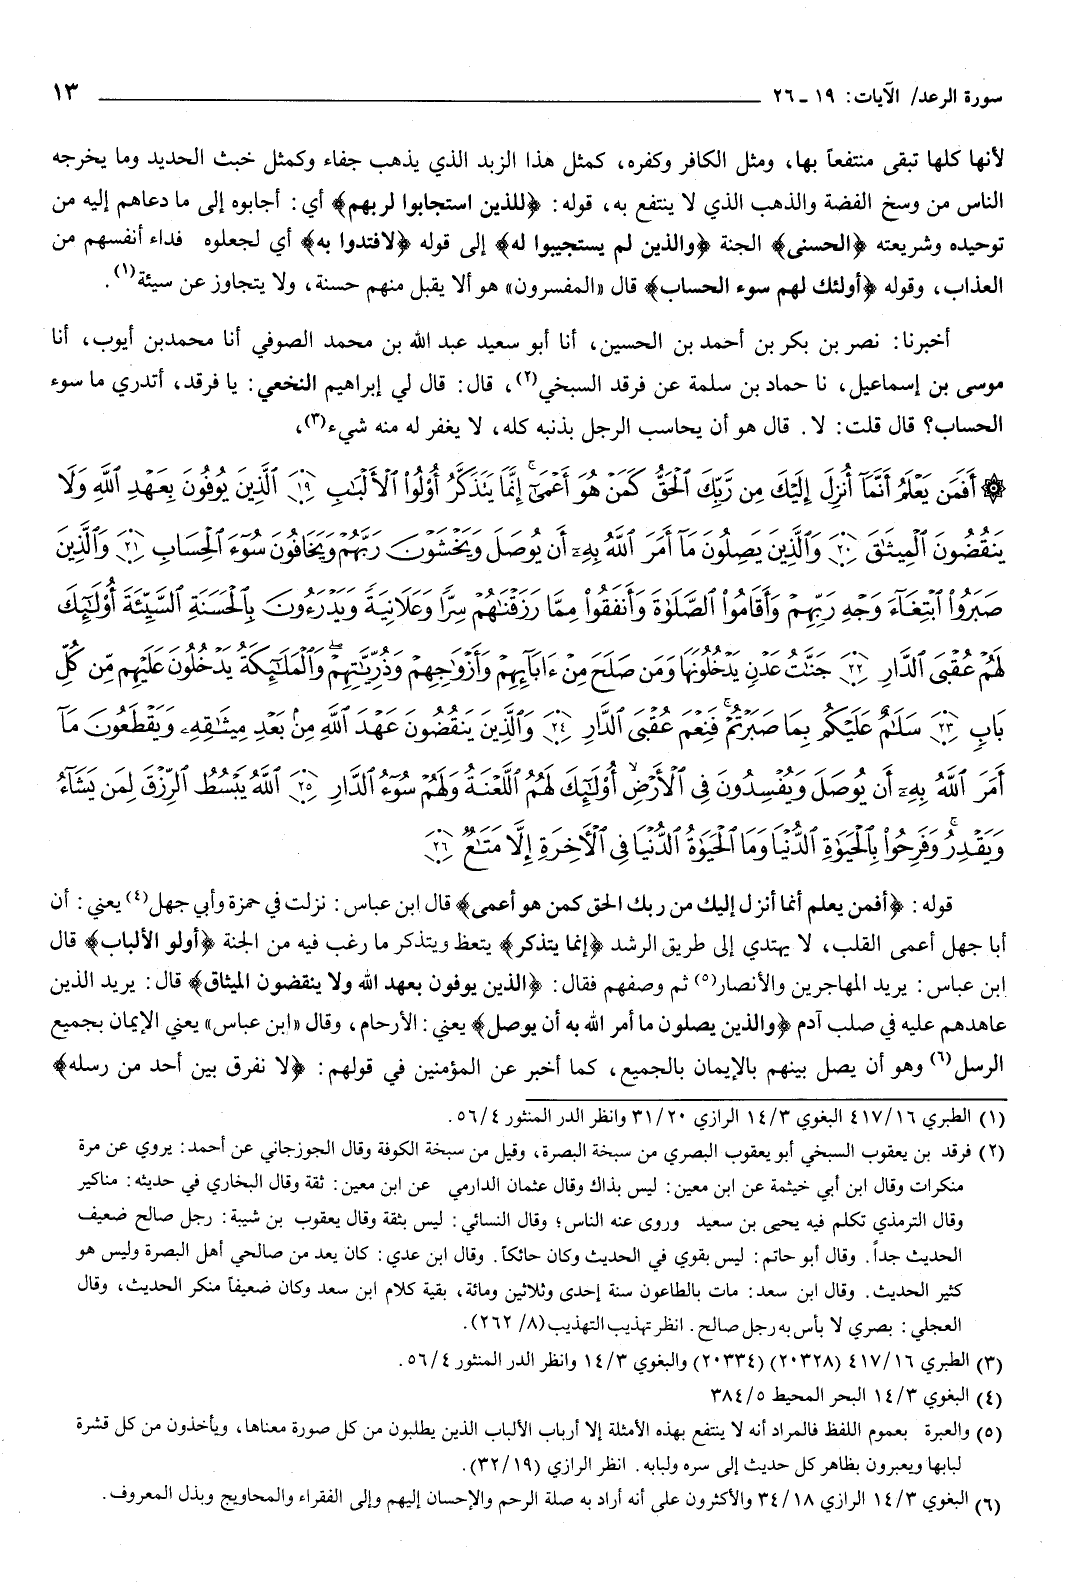 سورة الرعد/ الآيات: ١٩ ـ ٢٦ ١٣
لأنها كلها تبقى منتفعاً بها، ومثل الكافر وكفره، كمثل هذا الزبد الذي يذهب جفاء وكمثل خبث الحديد وما يخرجه
الناس من وسخ الفضة والذهب الذي لا ينتفع به، قوله: ﴿للذين استجابوا لربهم﴾ أي: أجابوه إلى ما دعاهم إليه من
توحيده وشريعته ﴿الحسنى﴾ الجنة ﴿والذين لم يستجيبوا له﴾ إلى قوله ﴿لافتدوا به﴾ أي لجعلوه فداء أنفسهم من
العذاب، وقوله ﴿أولئك لهم سوء الحساب﴾ قال «المفسرون» هو ألا يقبل منهم حسنة، ولا يتجاوز عن سيئة(١).
أخبرنا: نصر بن بكر بن أحمد بن الحسين، أنا أبو سعيد عبد الله بن محمد الصوفي أنا محمدبن أيوب، أنا
موسى بن إسماعيل، نا حماد بن سلمة عن فرقد السبخي(٢)، قال: قال لي إبراهيم النخعي: يا فرقد، أتدري ما سوء
الحساب؟ قال قلت: لا. قال هو أن يحاسب الرجل بذنبه كله، لا يغفر له منه شيء(٣)،
۞ أَفَمَن يَعْلَمُ أَنَّمَآ أُنزِلَ إِلَيْكَ مِن رَّبِّكَ ٱلْحَقُّ كَمَنْ هُوَ أَعْمَىٰٓ ۚ إِنَّمَا يَتَذَكَّرُ أُو۟لُوا۟ ٱلْأَلْبَٰبِ ﴿١٩﴾ ٱلَّذِينَ يُوفُونَ بِعَهْدِ ٱللَّهِ وَلَا
يَنقُضُونَ ٱلْمِيثَٰقَ ﴿٢٠﴾ وَٱلَّذِينَ يَصِلُونَ مَآ أَمَرَ ٱللَّهُ بِهِۦٓ أَن يُوصَلَ وَيَخْشَوْنَ رَبَّهُمْ وَيَخَافُونَ سُوٓءَ ٱلْحِسَابِ ﴿٢١﴾ وَٱلَّذِينَ
صَبَرُوا۟ ٱبْتِغَآءَ وَجْهِ رَبِّهِمْ وَأَقَامُوا۟ ٱلصَّلَوٰةَ وَأَنفَقُوا۟ مِمَّا رَزَقْنَٰهُمْ سِرًّا وَعَلَانِيَةً وَيَدْرَءُونَ بِٱلْحَسَنَةِ ٱلسَّيِّئَةَ أُو۟لَٰٓئِكَ
لَهُمْ عُقْبَى ٱلدَّارِ ﴿٢٢﴾ جَنَّٰتُ عَدْنٍ يَدْخُلُونَهَا وَمَن صَلَحَ مِنْ ءَابَآئِهِمْ وَأَزْوَٰجِهِمْ وَذُرِّيَّٰتِهِمْ ۖ وَٱلْمَلَٰٓئِكَةُ يَدْخُلُونَ عَلَيْهِم مِّن كُلِّ
بَابٍ ﴿٢٣﴾ سَلَٰمٌ عَلَيْكُم بِمَا صَبَرْتُمْ ۚ فَنِعْمَ عُقْبَى ٱلدَّارِ ﴿٢٤﴾ وَٱلَّذِينَ يَنقُضُونَ عَهْدَ ٱللَّهِ مِنۢ بَعْدِ مِيثَٰقِهِۦ وَيَقْطَعُونَ مَآ
أَمَرَ ٱللَّهُ بِهِۦٓ أَن يُوصَلَ وَيُفْسِدُونَ فِى ٱلْأَرْضِ ۙ أُو۟لَٰٓئِكَ لَهُمُ ٱللَّعْنَةُ وَلَهُمْ سُوٓءُ ٱلدَّارِ ﴿٢٥﴾ ٱللَّهُ يَبْسُطُ ٱلرِّزْقَ لِمَن يَشَآءُ
وَيَقْدِرُ ۚ وَفَرِحُوا۟ بِٱلْحَيَوٰةِ ٱلدُّنْيَا وَمَا ٱلْحَيَوٰةُ ٱلدُّنْيَا فِى ٱلْءَاخِرَةِ إِلَّا مَتَٰعٌ ﴿٢٦﴾
قوله: ﴿أفمن يعلم أنما أنزل إليك من ربك الحق كمن هو أعمى﴾ قال ابن عباس: نزلت في حمزة وأبي جهل(٤) يعني: أن
أبا جهل أعمى القلب، لا يهتدي إلى طريق الرشد ﴿إنما يتذكر﴾ يتعظ ويتذكر ما رغب فيه من الجنة ﴿أولو الألباب﴾ قال
ابن عباس: يريد المهاجرين والأنصار(٥) ثم وصفهم فقال: ﴿الذين يوفون بعهد الله ولا ينقضون الميثاق﴾ قال: يريد الذين
عاهدهم عليه في صلب آدم ﴿والذين يصلون ما أمر الله به أن يوصل﴾ يعني: الأرحام، وقال «ابن عباس» يعني الإيمان بجميع
الرسل(٦) وهو أن يصل بينهم بالإيمان بالجميع، كما أخبر عن المؤمنين في قولهم: ﴿لا نفرق بين أحد من رسله﴾
(١) الطبري ٤١٧/١٦ البغوي ١٤/٣ الرازي ٣١/٢٠ وانظر الدر المنثور ٥٦/٤.
(٢) فرقد بن يعقوب السبخي أبو يعقوب البصري من سبخة البصرة، وقيل من سبخة الكوفة وقال الجوزجاني عن أحمد: يروي عن مرة
منكرات وقال ابن أبي خيثمة عن ابن معين: ليس بذاك وقال عثمان الدارمي عن ابن معين: ثقة وقال البخاري في حديثه: مناكير
وقال الترمذي تكلم فيه يحيى بن سعيد وروى عنه الناس؛ وقال النسائي: ليس بثقة وقال يعقوب بن شيبة: رجل صالح ضعيف
الحديث جداً. وقال أبو حاتم: ليس بقوي في الحديث وكان حائكاً. وقال ابن عدي: كان يعد من صالحي أهل البصرة وليس هو
كثير الحديث. وقال ابن سعد: مات بالطاعون سنة إحدى وثلاثين ومائة، بقية كلام ابن سعد وكان ضعيفاً منكر الحديث، وقال
العجلي: بصري لا بأس به رجل صالح. انظر تهذيب التهذيب (٨/ ٢٦٢).
(٣) الطبري ٤١٧/١٦ (٢٠٣٢٨) (٢٠٣٣٤) والبغوي ١٤/٣ وانظر الدر المنثور ٥٦/٤.
(٤) البغوي ١٤/٣ البحر المحيط ٣٨٤/٥
(٥) والعبرة بعموم اللفظ فالمراد أنه لا ينتفع بهذه الأمثلة إلا أرباب الألباب الذين يطلبون من كل صورة معناها، ويأخذون من كل قشرة
لبابها ويعبرون بظاهر كل حديث إلى سره ولبابه. انظر الرازي (٣٢/١٩).
(٦) البغوي ١٤/٣ الرازي ٣٤/١٨ والأكثرون على أنه أراد به صلة الرحم والإحسان إليهم وإلى الفقراء والمحاويج وبذل المعروف.